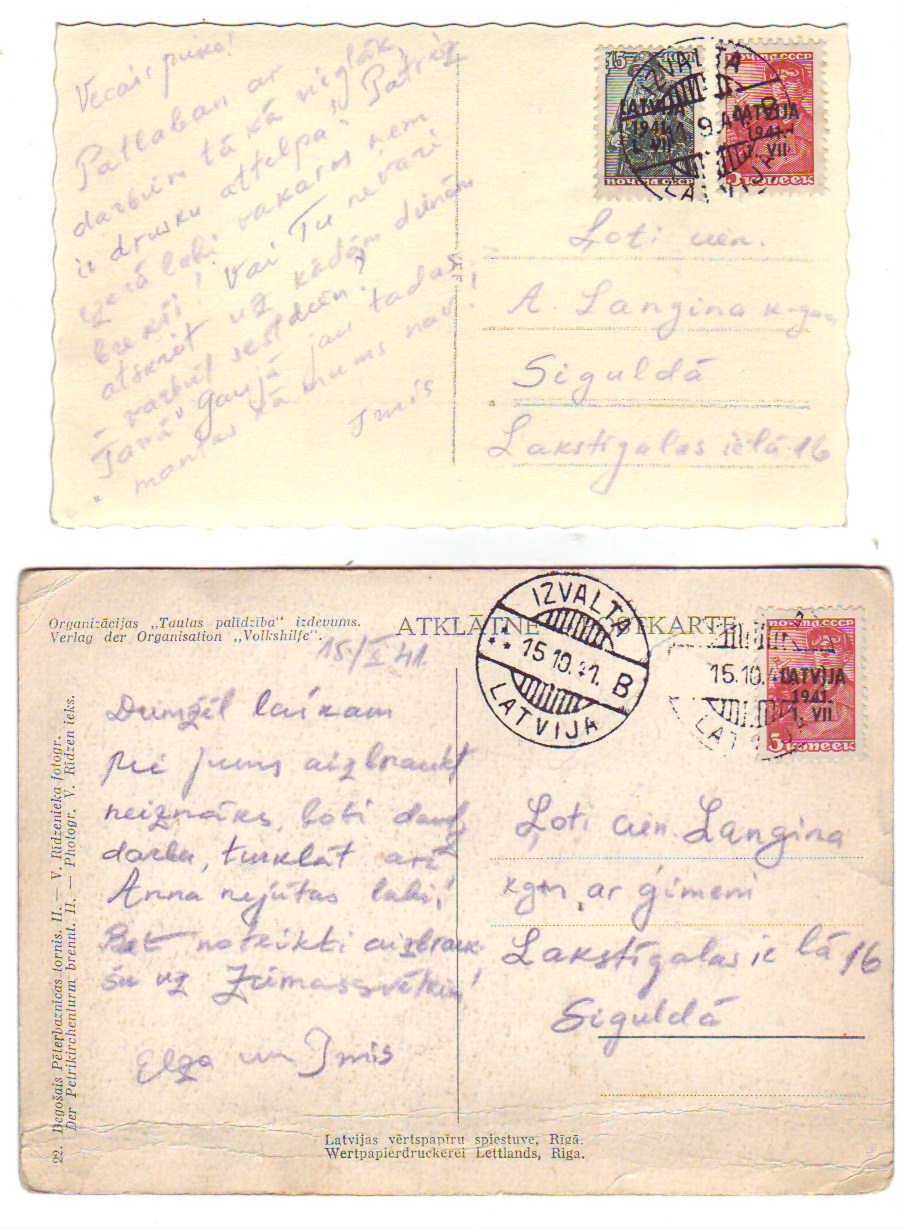 Vecais puika!
Patlaban ar
darbiem tā kā vieglāk,
ir drusku attelpa! Patreiz
ezerā labi vakaros ņem
brekši! Vai Tu nevari
atskriet uz kādām dienām
- varbūt sestdien?
Tanī Gaujā jau tādas
mantas kā mums nav!
Imis
15
ПОЧТА СССР
LATVIJA
1941.
1. VII
ПОЧТА СССР
LATVIJA
1941.
1. VII
5 КОПЕЕК
IZVALTA
LATVIJA
VEF
Ļoti cien.
A. Langina k-gam
Siguldā
Lakstīgalas ielā 16
Organizācijas „Tautas palīdzība" izdevums.
Verlag der Organisation „Volkshilfe".
ATKLĀTNE POSTKARTE
15/X 41
IZVALTA
15.10.41. B
LATVIJA
15.10.4
LATVIJA
ПОЧТА СССР
LATVIJA
1941.
1. VII
5 КОПЕЕК
Dumžēl laikam
pie Jums aizbraukt
neiznāks, ļoti daudz
darba, turklāt arī
Anna nejūtas labi!
Bet noteikti aizbrauk-
šu uz Ziemassvētkiem!
Elza un Imis
Ļoti cien. Langina
kgm ar ģimeni
Lakstīgalas ielā 16
Siguldā
22. Degošais Pēterbaznīcas tornis. II. — V. Rīdzenieka fotogr.
Der Petrikirchenturm brennt. II. — Photogr. V. Rīdzenieks.
Latvijas vērtspapīru spiestuve, Rīgā.
Wertpapierdruckerei Lettlands, Riga.